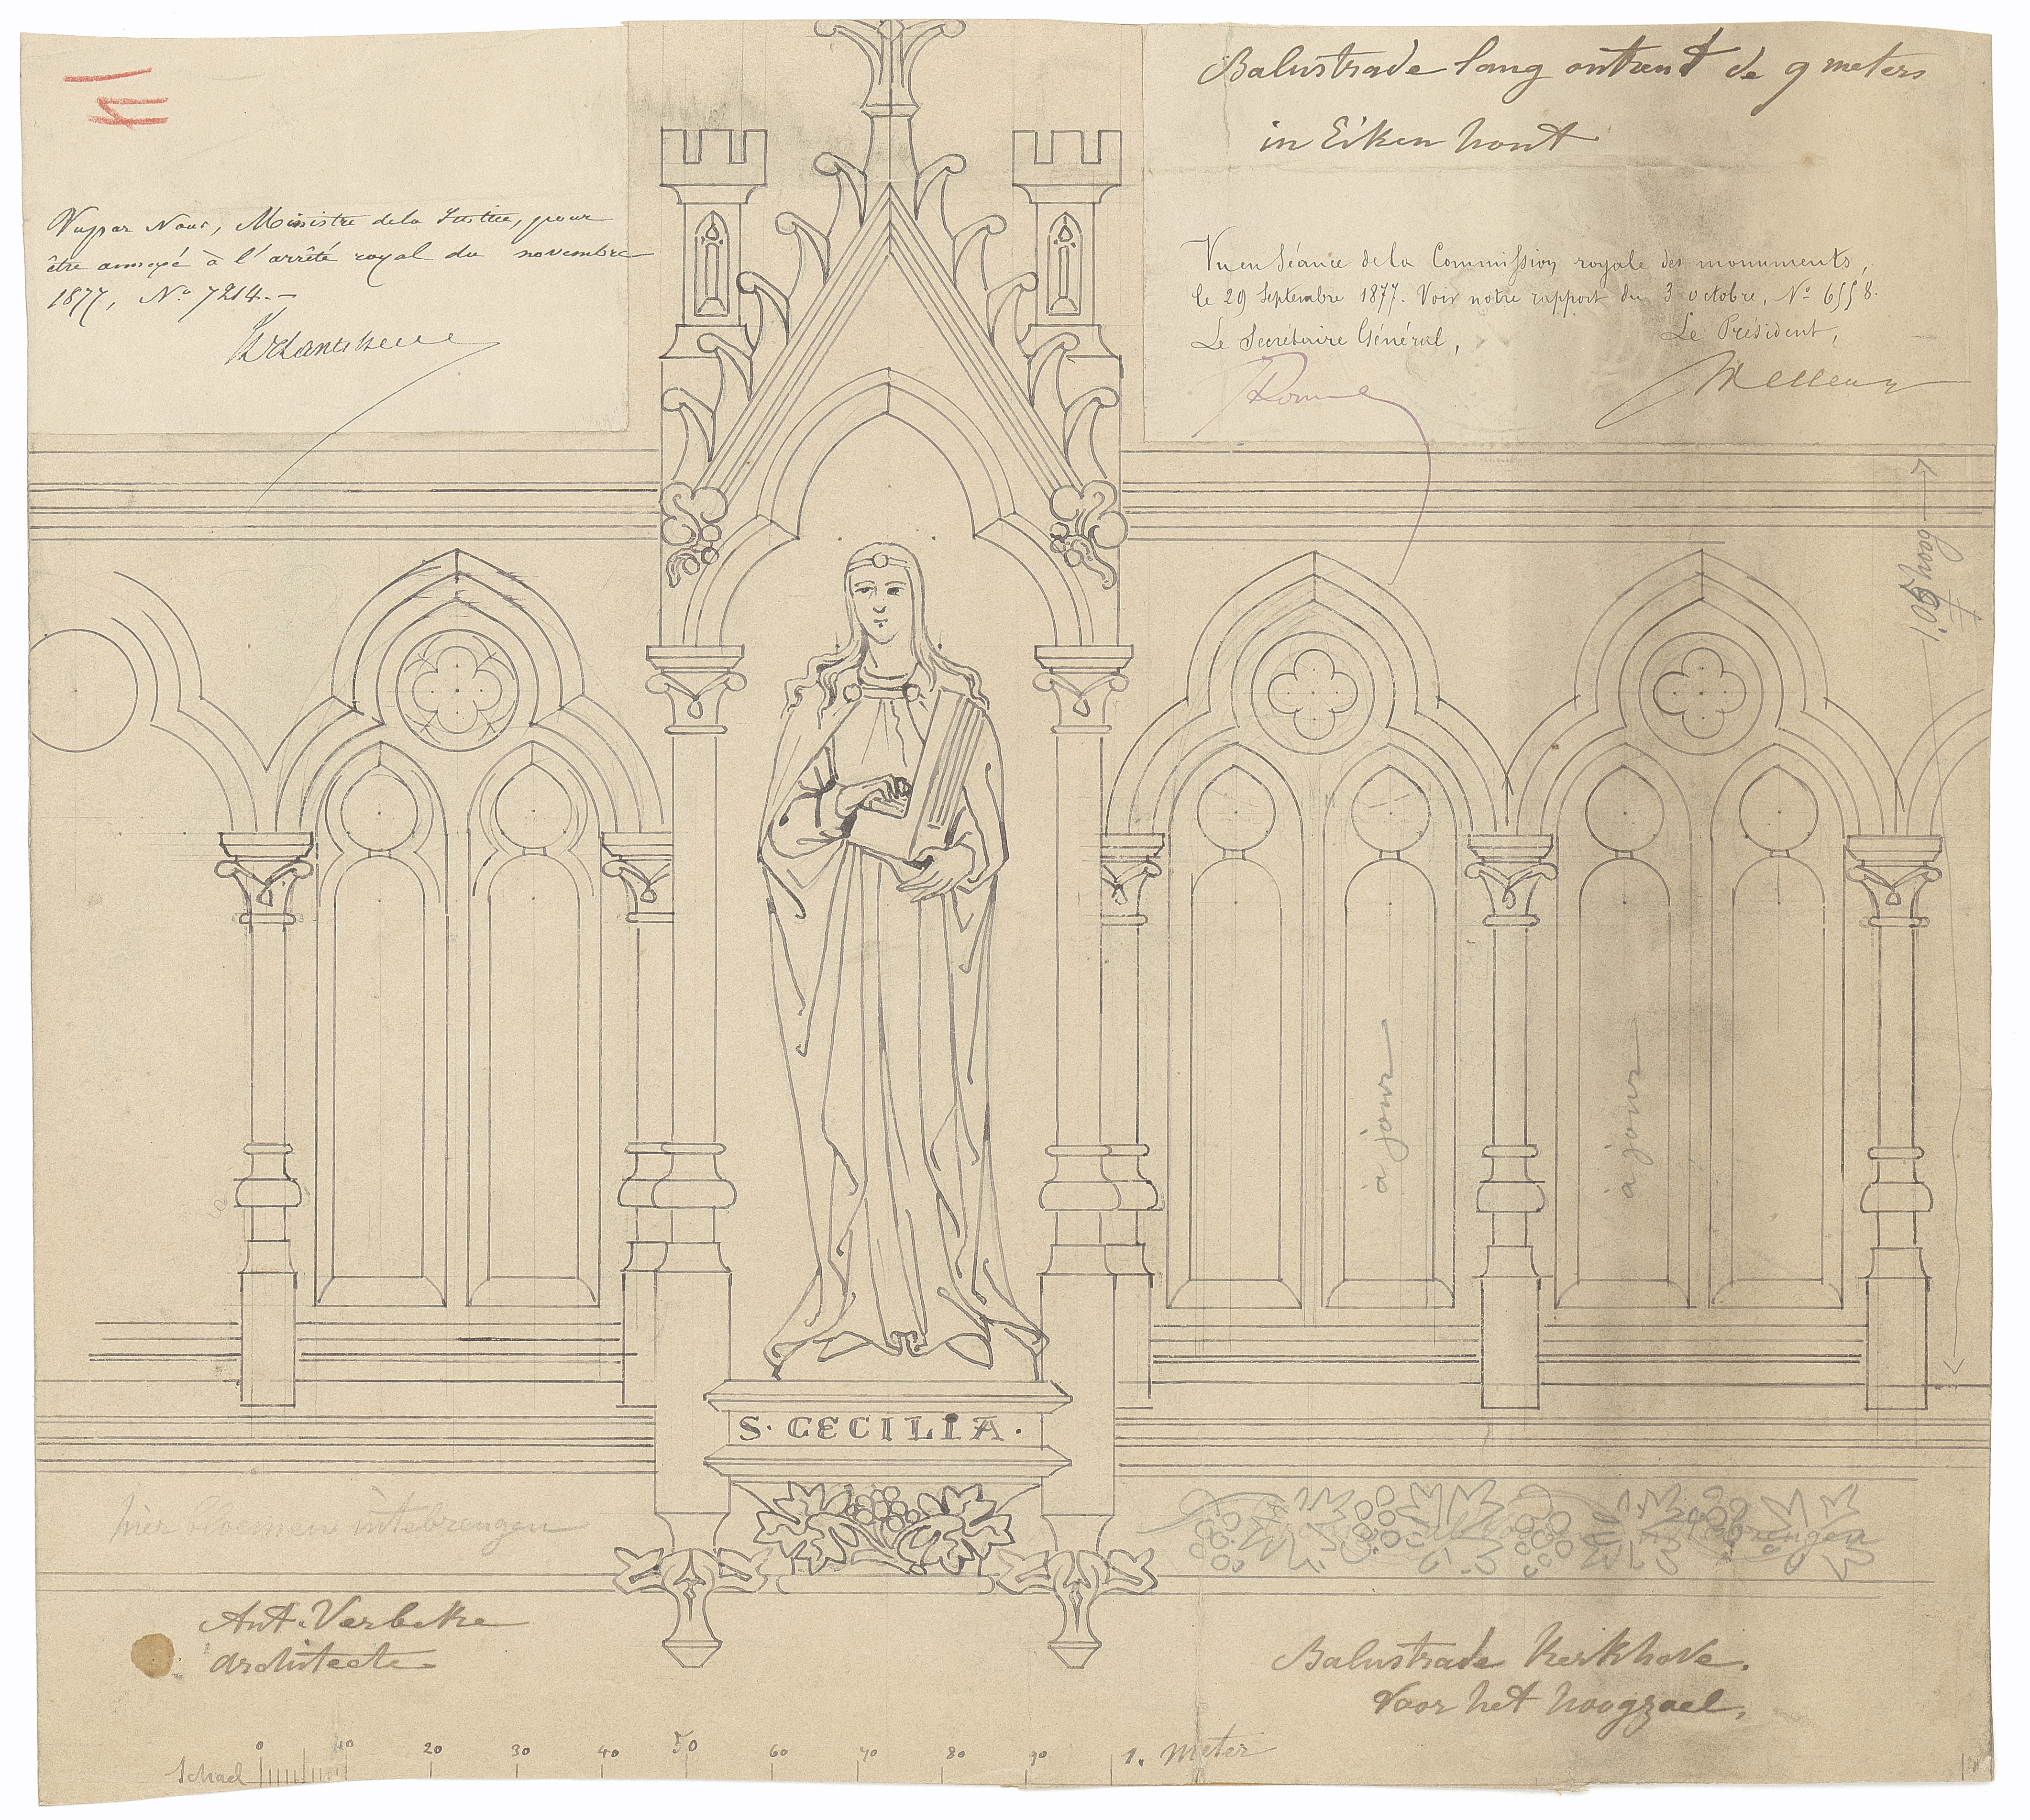 Balustrade lang ontrent de 9 meters
in Eiken hout
Vu par Nous, Ministre de la Justice, pour
être annexé à l'arrêté royal du novembre
1877, N° 7214.-
Vu en Séance de la Commission royale des monuments,
le 29 Septembre 1877. Voir notre rapport du 3 octobre, N° 6558.
Le Secrétaire Général,
Le Président,
1.05 hoog
à jour
à jour
S. CECILIA.
hier bloemen intebrengen
intebrengen
Ant. Verbeke
architecte
Balustrade Kerkhove.
Voor het hoogzael.
Schael 0 10 20 30 40 50 60 70 80 90 1. Meter